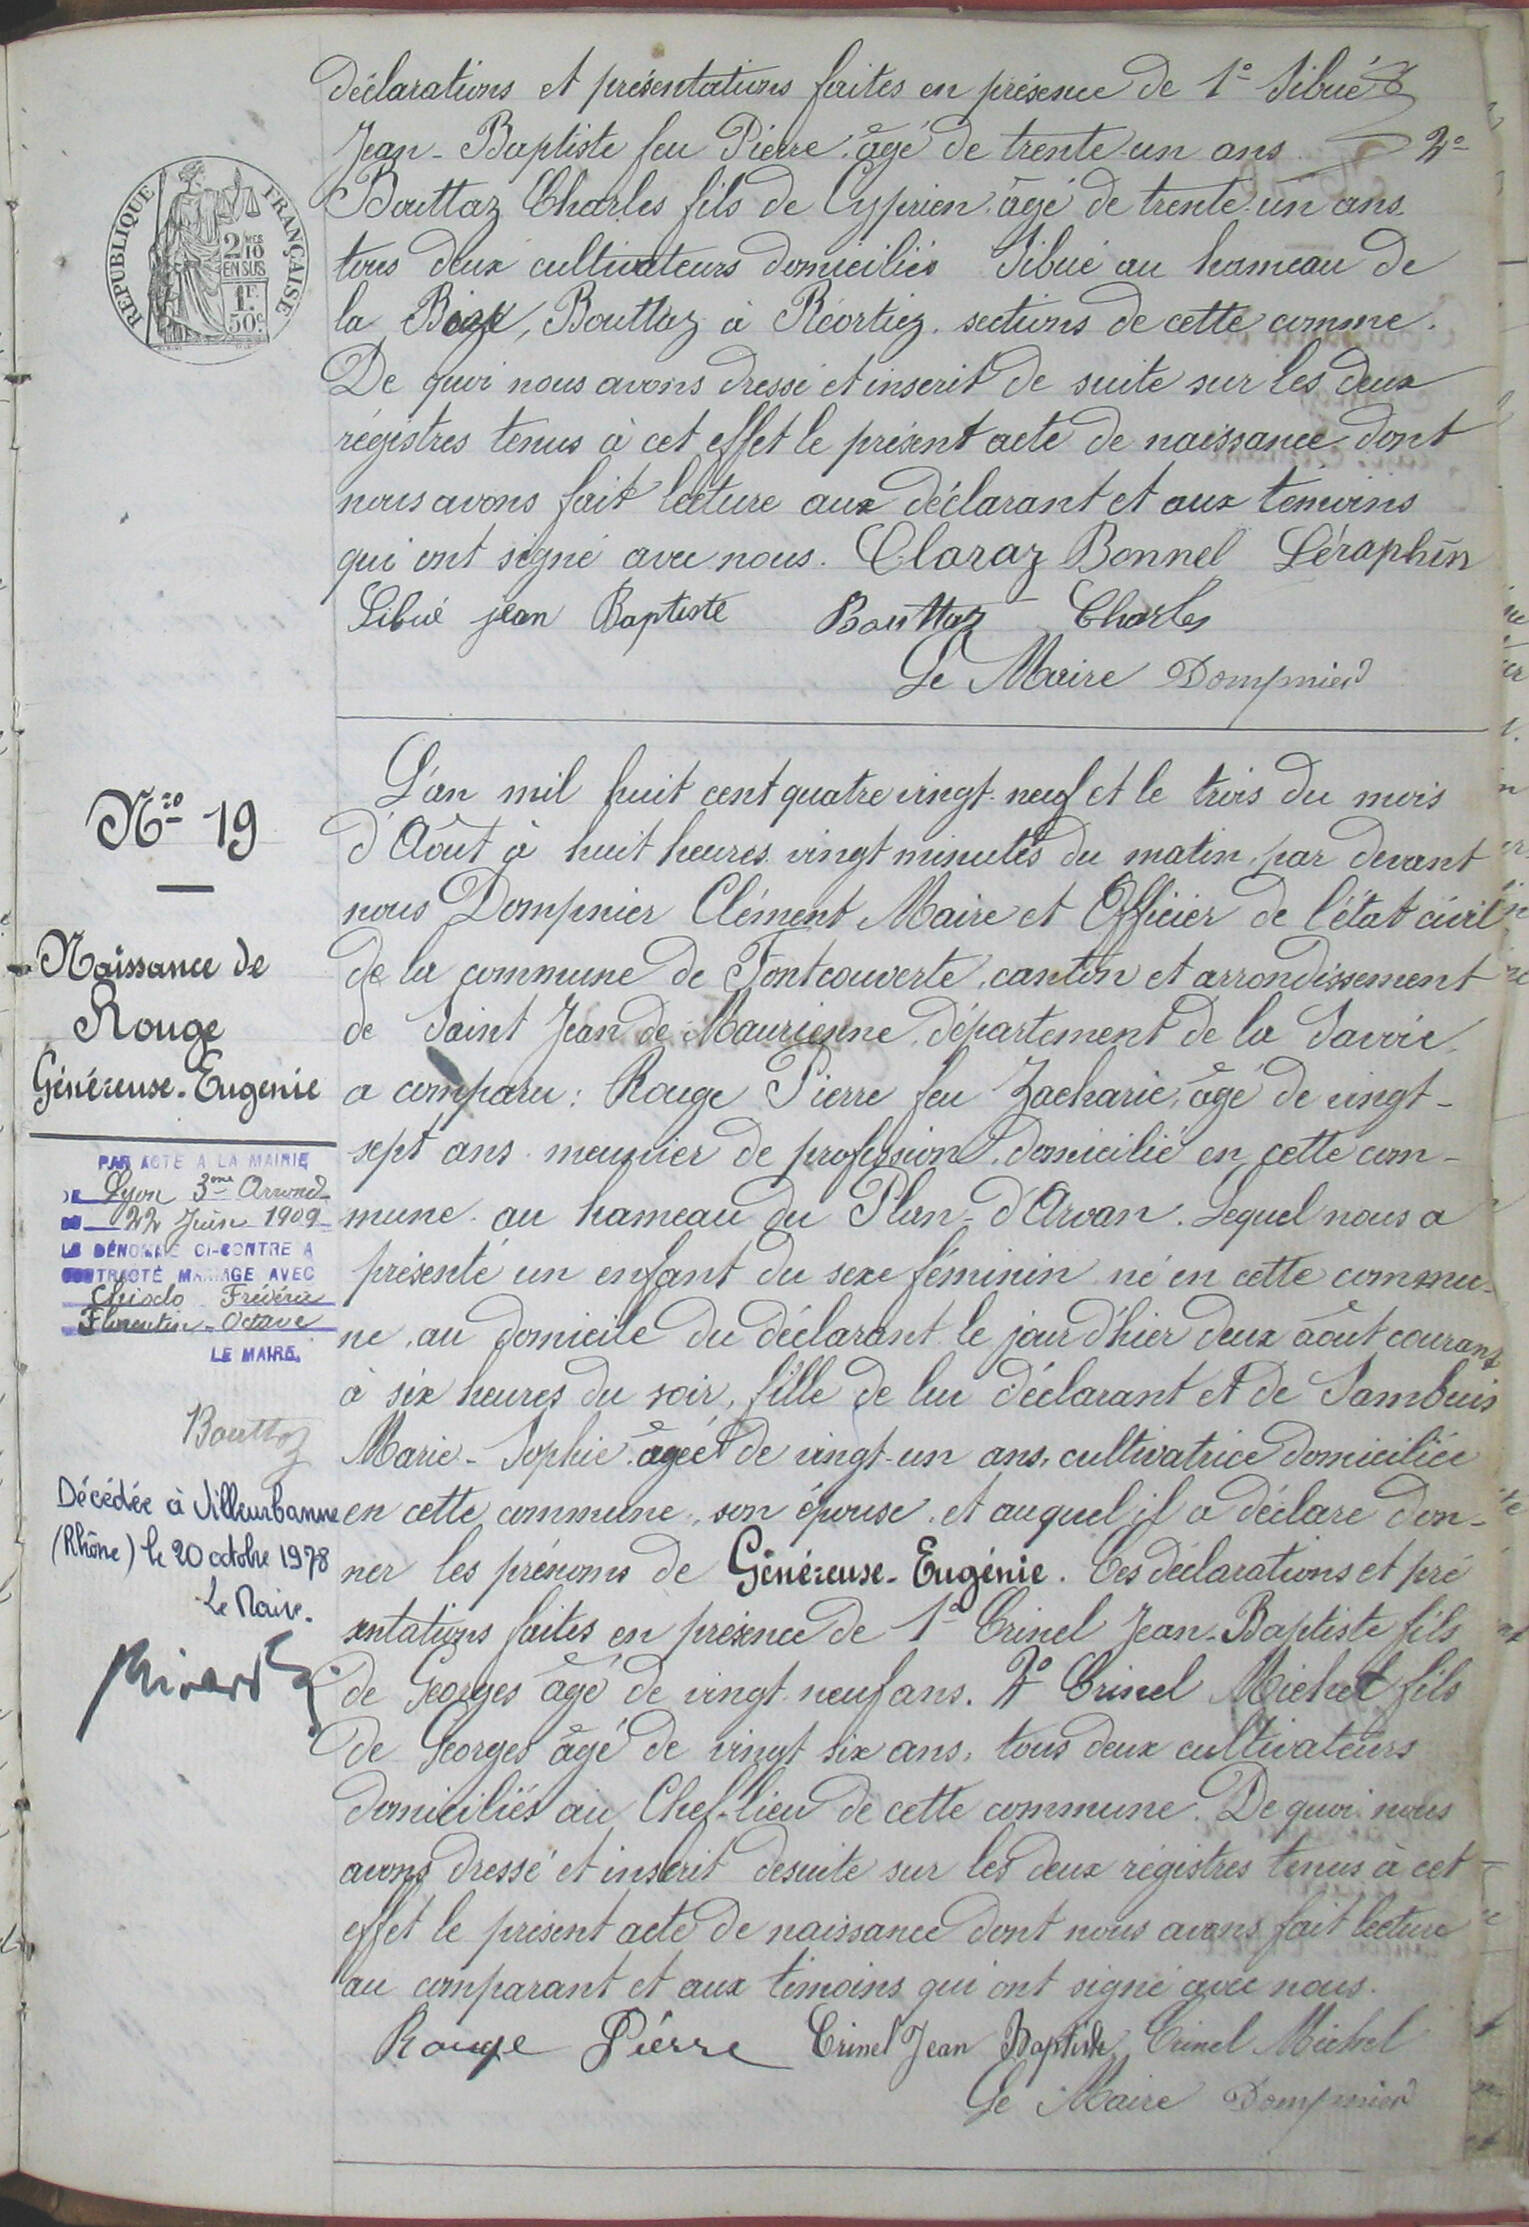 déclarations et présentations faites en présence de 1° Sibué
Jean-Baptiste feu Pierre, âgé de trente-un ans 2°
Bouttaz Charles fils de Cyprien, âgé de trente-un ans.
tous deux cultivateurs domiciliés Sibué au hameau de
la Bise, Bouttaz à Réortiez. sections de cette comme.
De quoi nous avons dressé et inscrit de suite sur les deux
régistres tenus à cet effet le présent acte de naissance dont
nous avons fait lecture aux déclarant et aux témoins
qui ont signé avec nous. Claraz Bonnel Séraphin
Sibué jean Baptiste Bouttaz Charles
Le Maire Dompnier
REPUBLIQUE FRANÇAISE
2 MES
10
EN SUS
1F.
50c.
N.ro 19
Naissance de
Rouge
Généreuse-Eugénie
PAR ACTE A LA MAIRIE
DE Lyon 3me Arrond
DU 22 Juin 1909
LE DÉNOMMÉ CI-CONTRE A
CONTRACTÉ MARIAGE AVEC
Frédéric
Florentin-Octave
LE MAIRE,
Bouttaz
Décédée à Villeurbanne
(Rhône) le 20 octobre 1978
Le Maire.
L'an mil huit cent quatre vingt-neuf et le trois du mois
d'Août à huit heures vingt minutes du matin, par devant
nous Dompnier Clément Maire et Officier de l'état civil
de la commune de Fontcouverte, canton et arrondissement
de Saint Jean de Maurienne, département de la Savoie,
a comparu : Rouge Pierre feu Zacharie, âgé de vingt-
sept ans, meunier de profession, domicilié en cette com-
mune au hameau du Plan-d'Arvan. Lequel nous a
présenté un enfant du sexe féminin né en cette commu-
ne, au domicile du déclarant le jour d'hier deux août courant
à six heures du soir, fille de lui déclarant et de Sambuis
Marie-Sophie âgée de vingt-un ans, cultivatrice domiciliée
en cette commune, son épouse, et auquel il a déclaré don-
ner les prénoms de Généreuse-Eugénie. Ces déclarations et pré
sentations faites en présence de 1° Crinel Jean-Baptiste fils
de Georges âgé de vingt-neuf ans. 2° Crinel Michel fils
de Georges âgé de vingt six ans, tous deux cultivateurs
domiciliés au Chef-lieu de cette commune. De quoi nous
avons dressé et inscrit desuite sur les deux régistres tenus à cet
effet le présent acte de naissance dont nous avons fait lecture
au comparant et aux témoins qui ont signé avec nous.
Rouge Pierre Crinel Jean Baptiste Crinel Michel
Le Maire Dompnier